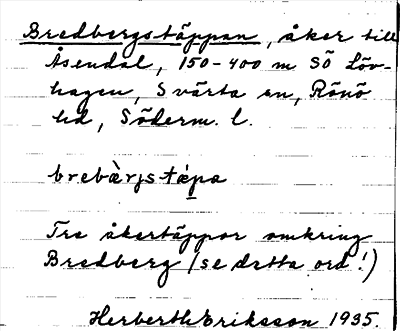 Bredbergstäppan, åker till
Åsendal, 150-400 m SÖ Löv-
hagen, Svärta sn, Rönö
hd, Söderm. l.
brebàrjstápa
Tre åkertäppor omkring
Bredberg (se detta ord!)
Herberth Eriksson 1935.